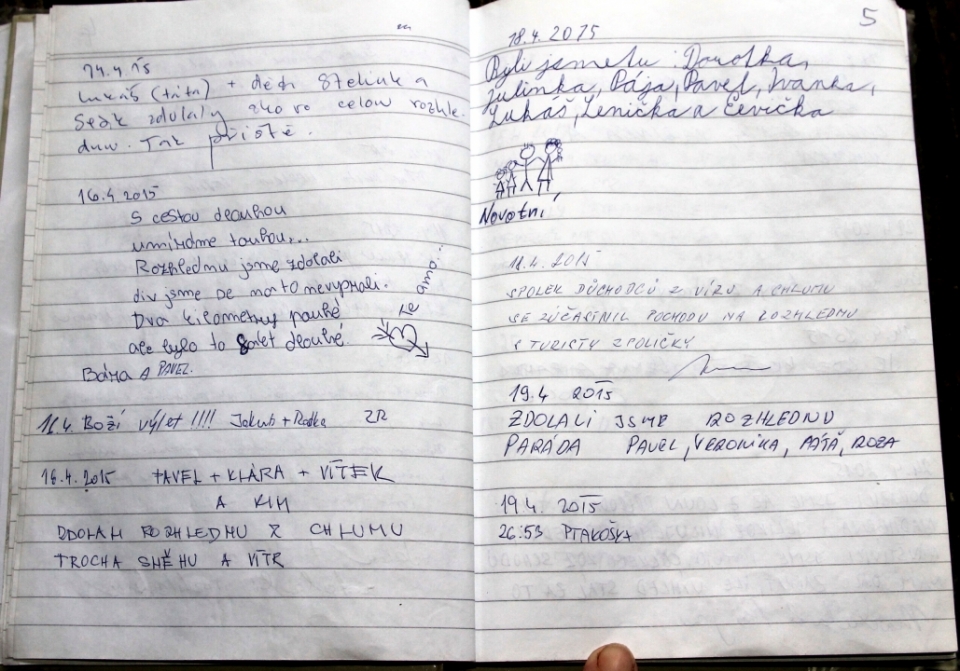 14.4 15
Lukáš (táta) + děda Stehlík a
Sejk zdolaly skoro celou rozhle.
dnu. Tak příště.
16.4 2015
S cestou dlouhou
umíráme touhou...
Rozhlednu jsme zdolali
div jsme se na to nevysrali.
Dva kilometry pouhé
ale bylo to 8 let dlouhé.
Te amo...
Bára A PAVEL.
16.4. Boží výlet !!!! Jakub + Radka ZR
16.4.2015 PAVEL + KLÁRA + VÍTEK
A KIM
ZDOLALI ROZHLEDNU Z CHLUMU
TROCHA SNĚHU A VÍTR
5
18.4. 2015
Byli jsme tu: Dorotka,
Julinka, Pája, Pavel, Ivanka,
Lukáš, Lenička a Evička
Novotní
18.4. 2015
SPOLEK DŮCHODCŮ Z VÍRU A CHLUMU
SE ZÚČASTNIL POCHODU NA ROZHLEDNU
S TURISTY Z POLIČKY
19.4 2015
ZDOLALI JSME ROZHLEDNU
PARÁDA PAVEL, VERONIKA, PÁŤA, ROZA
19.4. 2015
26:53 PTAKOŠKA